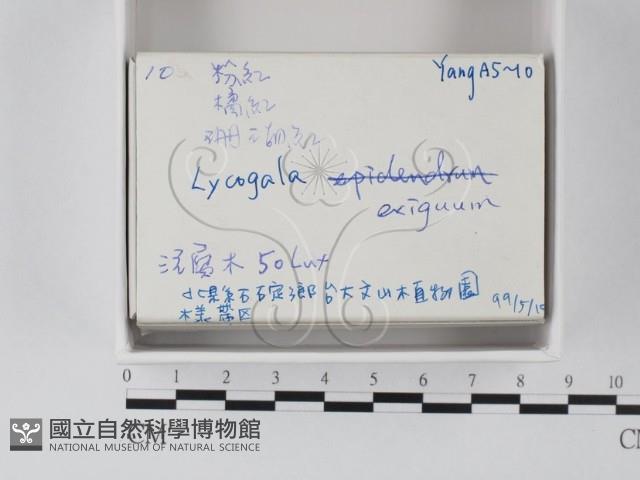 10 粉紅 YangA5~10
橘紅
珊瑚紅
Lycogala epidendrum
exiguum
腐木 50 Lux
北縣石碇鄉台大文山植物園 99/5/10
樣帶區
0 1 2 3 4 5 6 7 8 9 10
CM CM
國立自然科學博物館
NATIONAL MUSEUM OF NATURAL SCIENCE